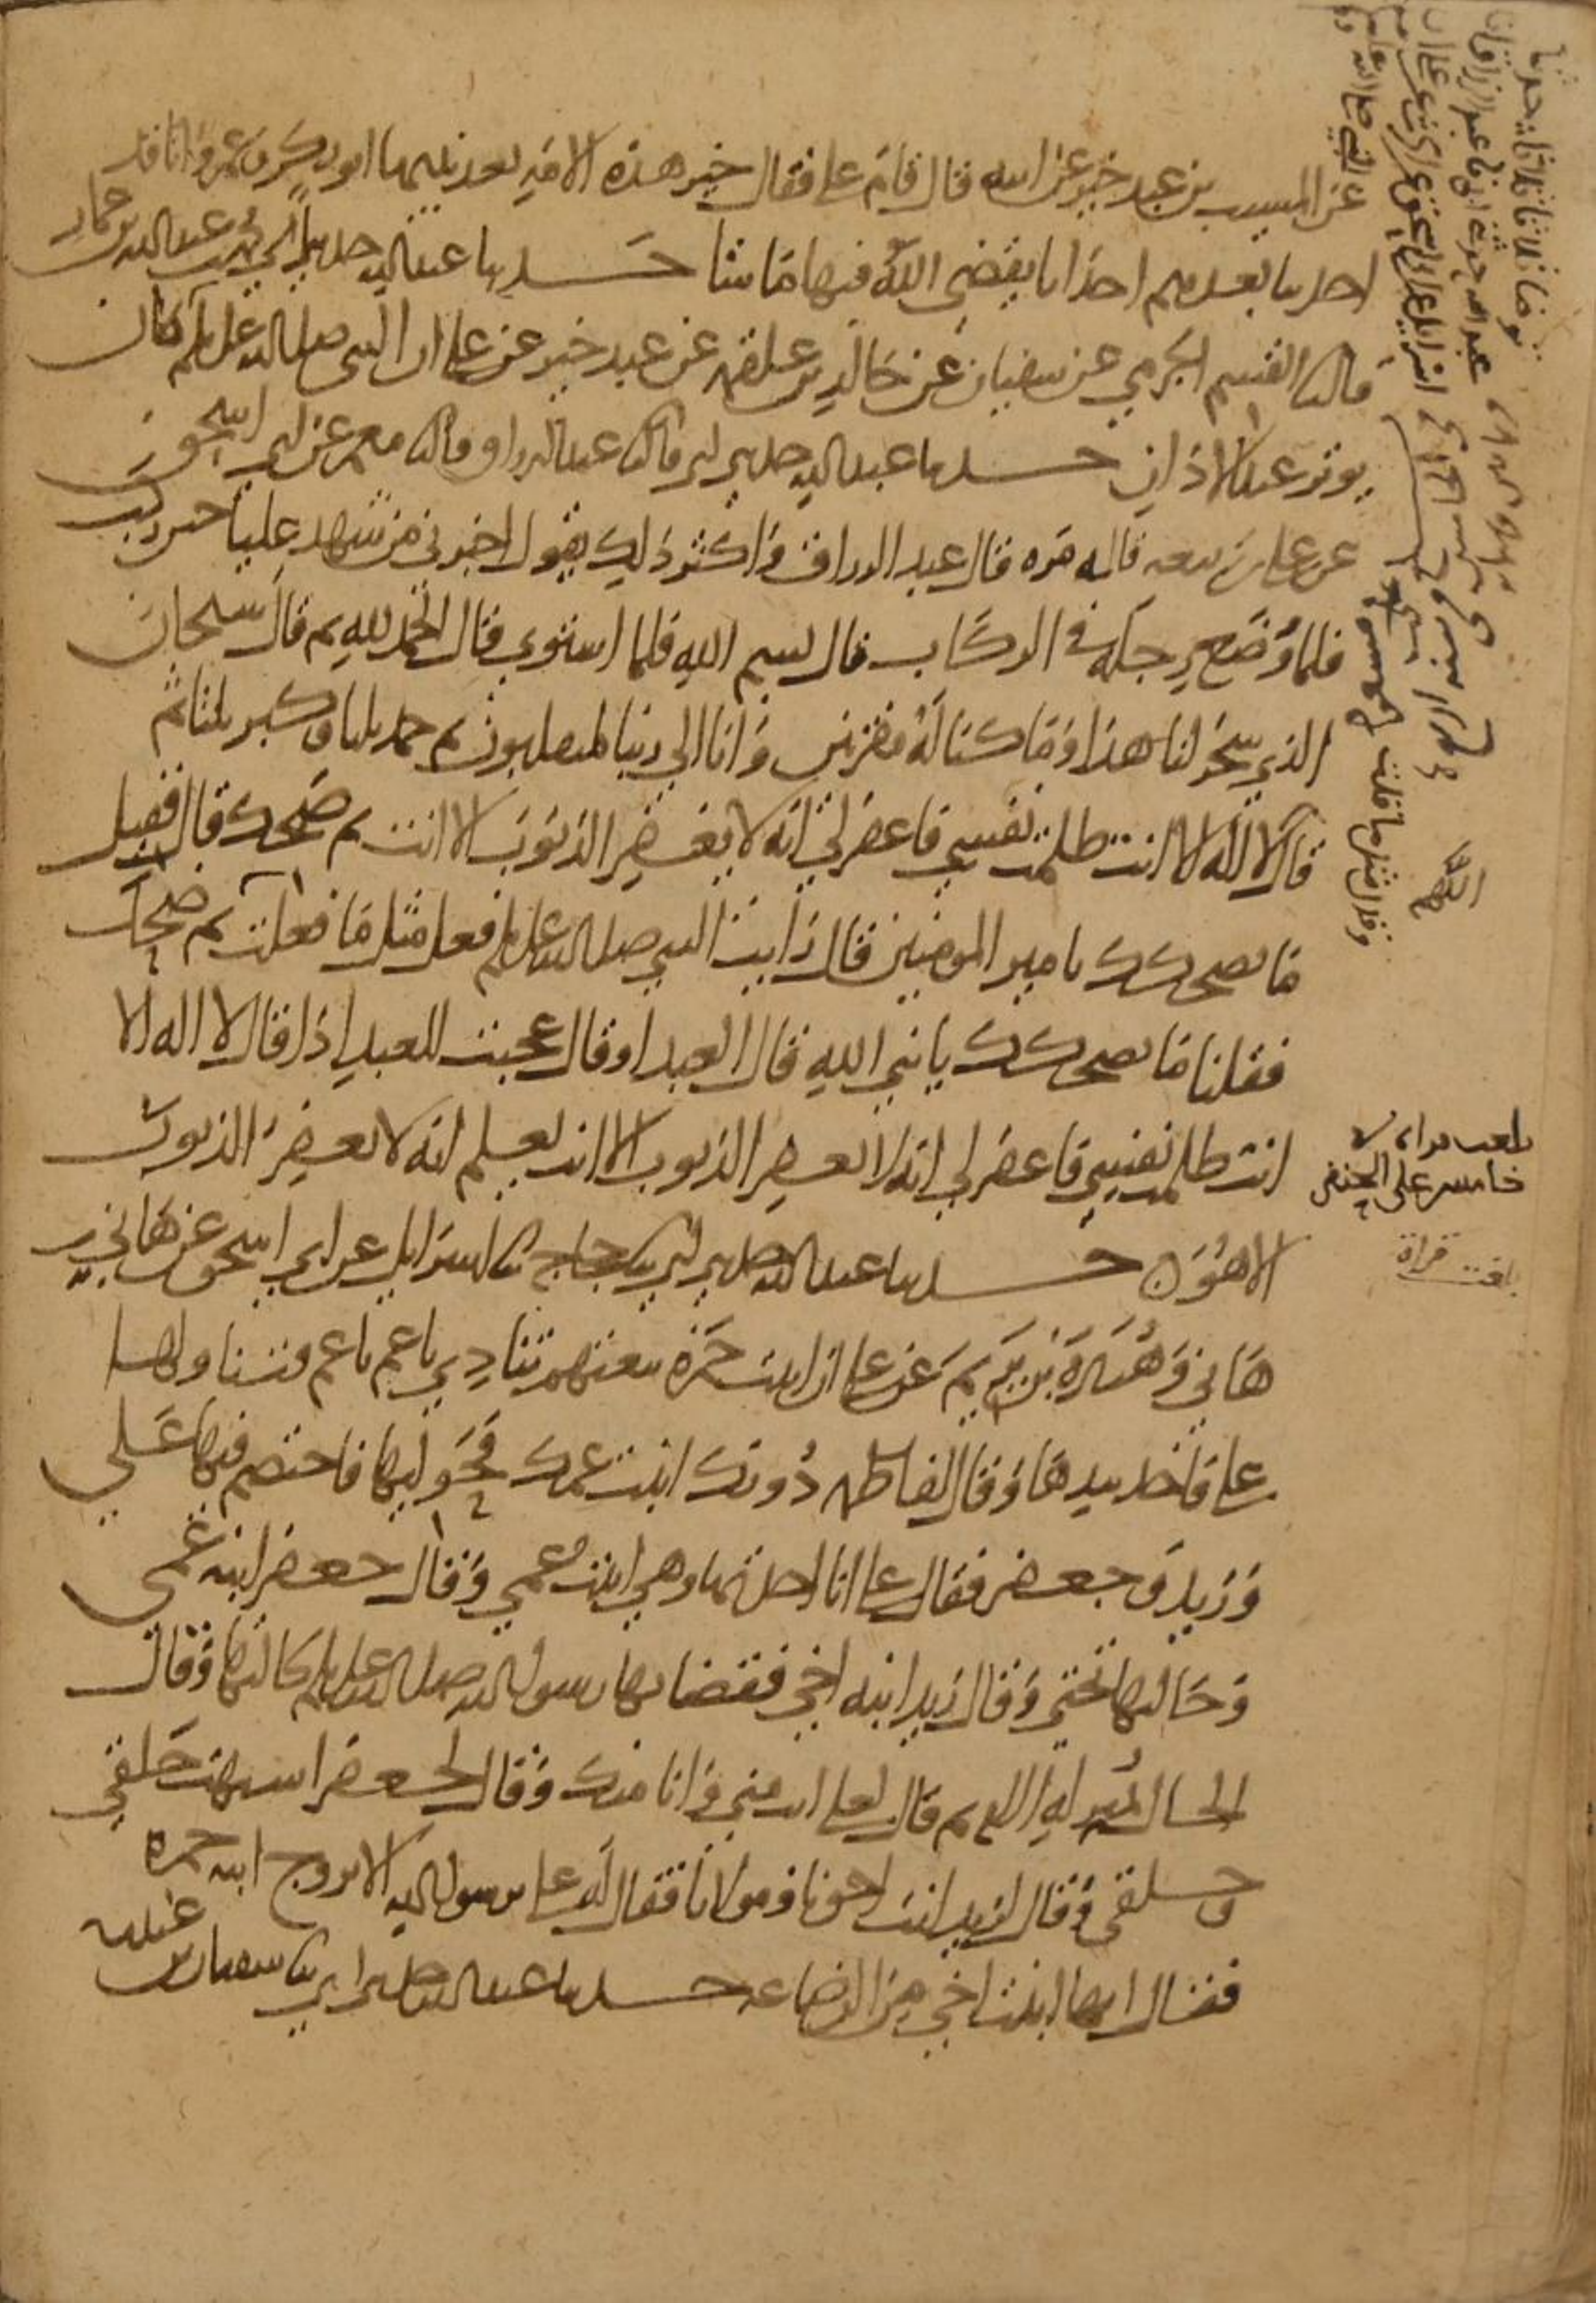 عن المسيب بن عبد خير عن ابيه قال قام علي فقال خير هذه الامة بعد نبيها ابو بكر وعمر وانا قد
احدثنا بعدهم احداثا يقضي الله فيها ما شا حدثنا عبدالله حدثني ابي محمد بن عبدالله بن عمار
قال ثنا القسم الجرمي عن سفيان عن خالد بن علقمة عن عبد خير عن علي ان النبي صلى الله عليه وسلم كان
يوتر عند الاذان حدثنا عبد الله حدثني ابي قال ثنا عبد الرزاق قال ثنا معمر عن ابي اسحق
عن علي بن ربيعه قاله مره قال عبد الرزاق واكثر ذلك يقول اخبرني من شهد عليا حين ركب
فلما وضع رجله في الركاب قال بسم الله فلما استوى قال الحمد لله ثم قال سبحان
الذي سخر لنا هذا وما كنا له مقرنين وانا الى ربنا لمنقلبون ثم حمد ثلثا وكبر ثلثا ثم
قال لا اله الا انت ظلمت نفسي فاغفر لي انه لا يغفر الذنوب الا انت ثم ضحك قال فقيل
ما يضحكك يا امير المومنين قال رايت النبي صلى الله عليه وسلم فعل مثل ما فعلت ثم ضحك
فقلنا ما يضحكك يا نبي الله قال العبد او قال عجبت للعبد اذا قال لا اله الا
انت ظلمت نفسي فاغفر لي انه لا يغفر الذنوب الا انت يعلم انه لا يغفر الذنوب
الا هو حدثنا عبد الله حدثني ابي ثنا حجاج ثنا اسرائيل عن ابي اسحق عن هاني بن
هاني وهبيرة بن يريم عن علي ان ابنت حمزه تبعتهم تنادي يا عم يا عم فتناولها
علي فاخذ بيدها وقال لفاطمه دونك ابنت عمك فحوليها فاختصم فيها علي
وزيد وجعفر فقال علي انا اخذتها وهي ابنت عمي وقال جعفر ابنه عمي
وخالتها تحتي وقال زيد ابنه اخي فقضا بها رسول الله صلى الله عليه وسلم لخالتها وقال
الخاله بمنزله الام ثم قال لعلي انت مني وانا منك وقال لجعفر اشبهت خلقي
وخلقي وقال لزيد انت اخونا ومولانا فقال له علي يرسول الله الا تزوج ابنه حمزه
فقال انها ابنت اخي من الرضاعه حدثنا عبد الله حدثني ابي ثنا سفيان بن عيينه
توضا ثلاثا ثلاثا حدثنا
عبد الله حدثني ابي ثنا عبد الرزاق انا
اسرائيل عن ابي اسحق عن
عن النبي صلى الله عليه وسلم
وقال مثل ما قلت
اللهم
بلغت قراءة
خامس على الحنفي
بلغت قراة